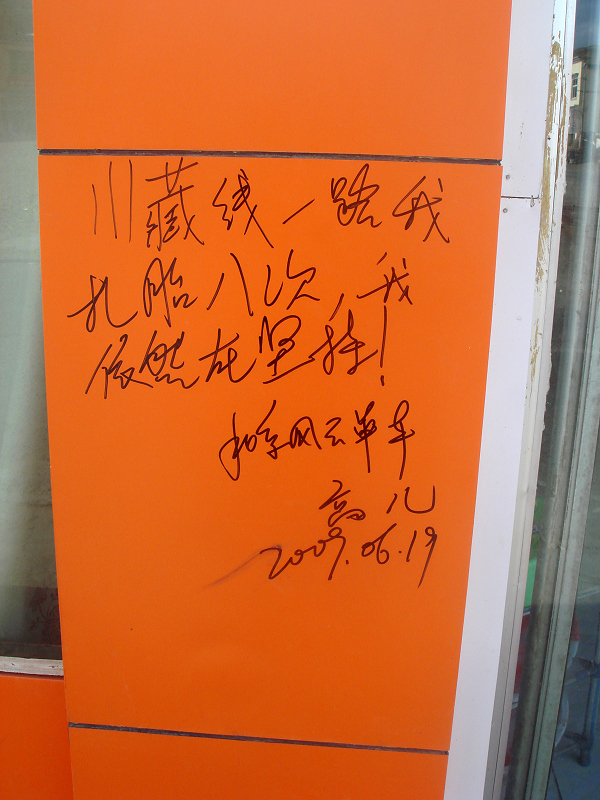 川藏线一路我
扎胎八次,我
依然在坚持!
风云单车
高儿
2009.06.19